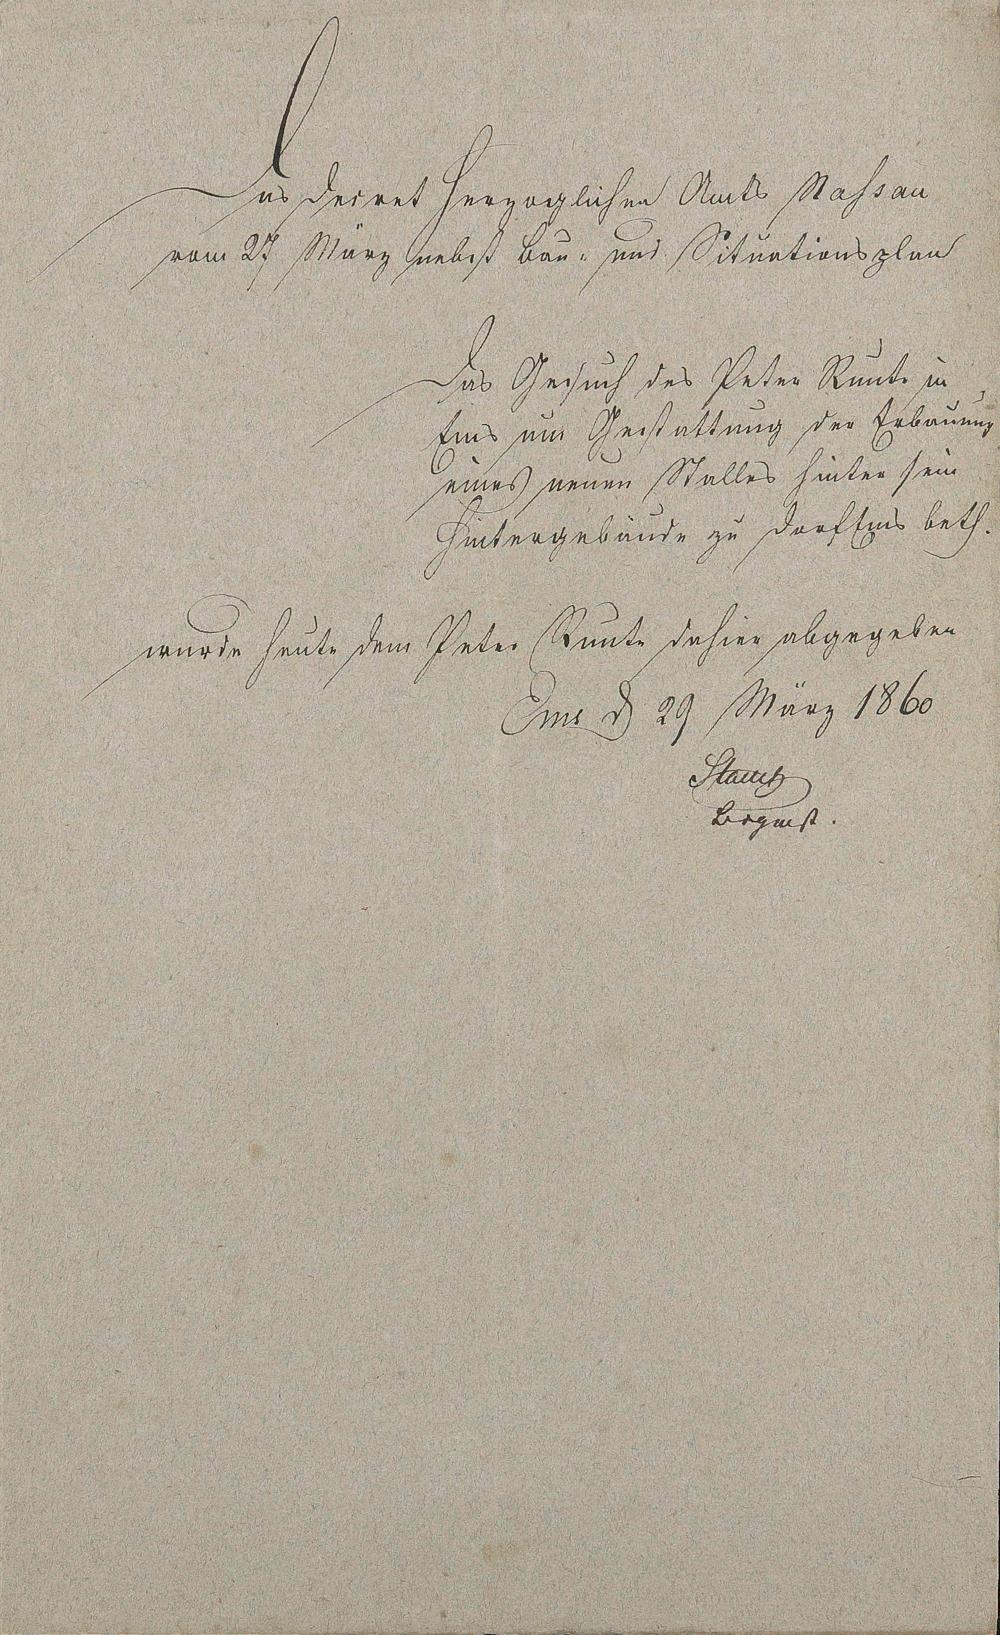 Das Decret Herzoglichen Amts Nassau
vom 27 März nebst Bau- und Situationsplan
Das Gesuch des Peter Runte in
Ems um Gestattung der Erbauung
eines neuen Stalles hinter sein
Hintergebäude zu Dorf Ems betf.
wurde heute dem Peter Runte dahier abgegeben
Ems d 29 März 1860
Brgmst.